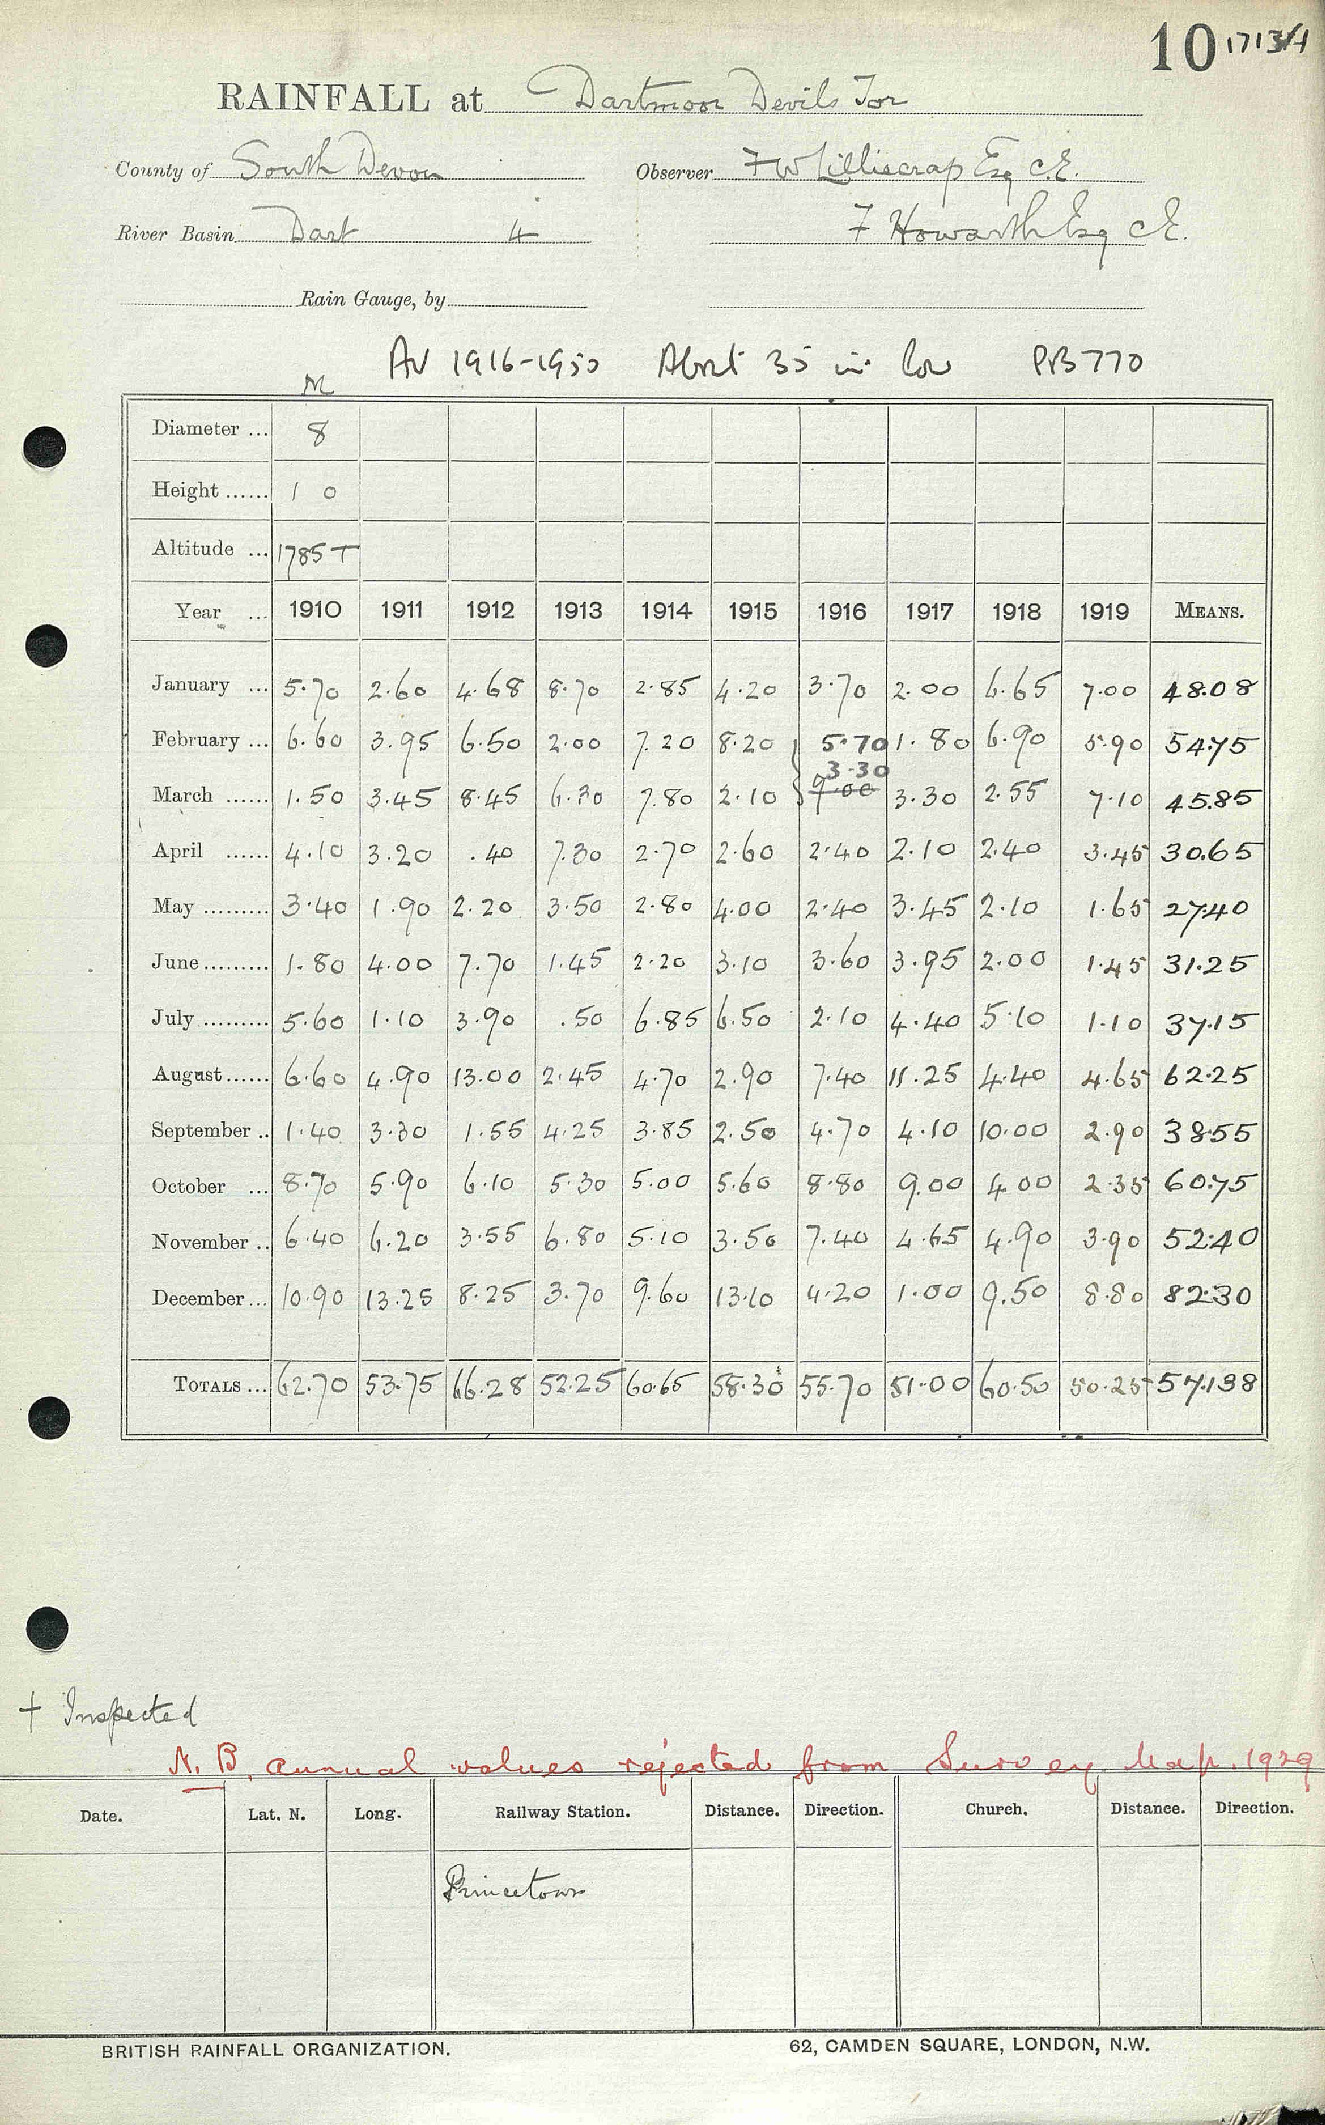 10 1713/1
RAINFALL at Dartmoor Devils Tor
County of South Devon Observer F W Lilliscrap Esq C.E.
River Basin Dart 4 F Howarth Esq C.E.
Rain Gauge, by
Av 1916-1950 About 35 in low PB 770
M
Diameter ... 8
Height ...... 1 0
Altitude ... 1785 T
Year ... 1910 1911 1912 1913 1914 1915 1916 1917 1918 1919 MEANS.
January ... 5.70 2.60 4.68 8.70 2.85 4.20 3.70 2.00 6.65 7.00 48.08
February ... 6.60 3.95 6.50 2.00 7.20 8.20 5.70 1.80 6.90 5.90 54.75
3.30
March ...... 1.50 3.45 8.45 6.30 7.80 2.10 9.00 3.30 2.55 7.10 45.85
April ...... 4.10 3.20 .40 7.30 2.70 2.60 2.40 2.10 2.40 3.45 30.65
May ......... 3.40 1.90 2.20 3.50 2.80 4.00 2.40 3.45 2.10 1.65 27.40
June ......... 1.80 4.00 7.70 1.45 2.20 3.10 3.60 3.95 2.00 1.45 31.25
July ......... 5.60 1.10 3.90 .50 6.85 6.50 2.10 4.40 5.10 1.10 37.15
August ...... 6.60 4.90 13.00 2.45 4.70 2.90 7.40 11.25 4.40 4.65 62.25
September .. 1.40 3.30 1.55 4.25 3.85 2.50 4.70 4.10 10.00 2.90 38.55
October ... 8.70 5.90 6.10 5.30 5.00 5.60 8.80 9.00 4.00 2.35 60.75
November .. 6.40 6.20 3.55 6.80 5.10 3.50 7.40 4.65 4.90 3.90 52.40
December ... 10.90 13.25 8.25 3.70 9.60 13.10 4.20 1.00 9.50 8.80 82.30
TOTALS ... 62.70 53.75 66.28 52.25 60.65 58.30 55.70 51.00 60.50 50.25 571.38
+ Inspected
N.B. annual values rejected from Survey Map. 1929
Date. Lat. N. Long. Railway Station. Distance. Direction. Church. Distance. Direction.
Princetown
BRITISH RAINFALL ORGANIZATION. 62, CAMDEN SQUARE, LONDON, N.W.